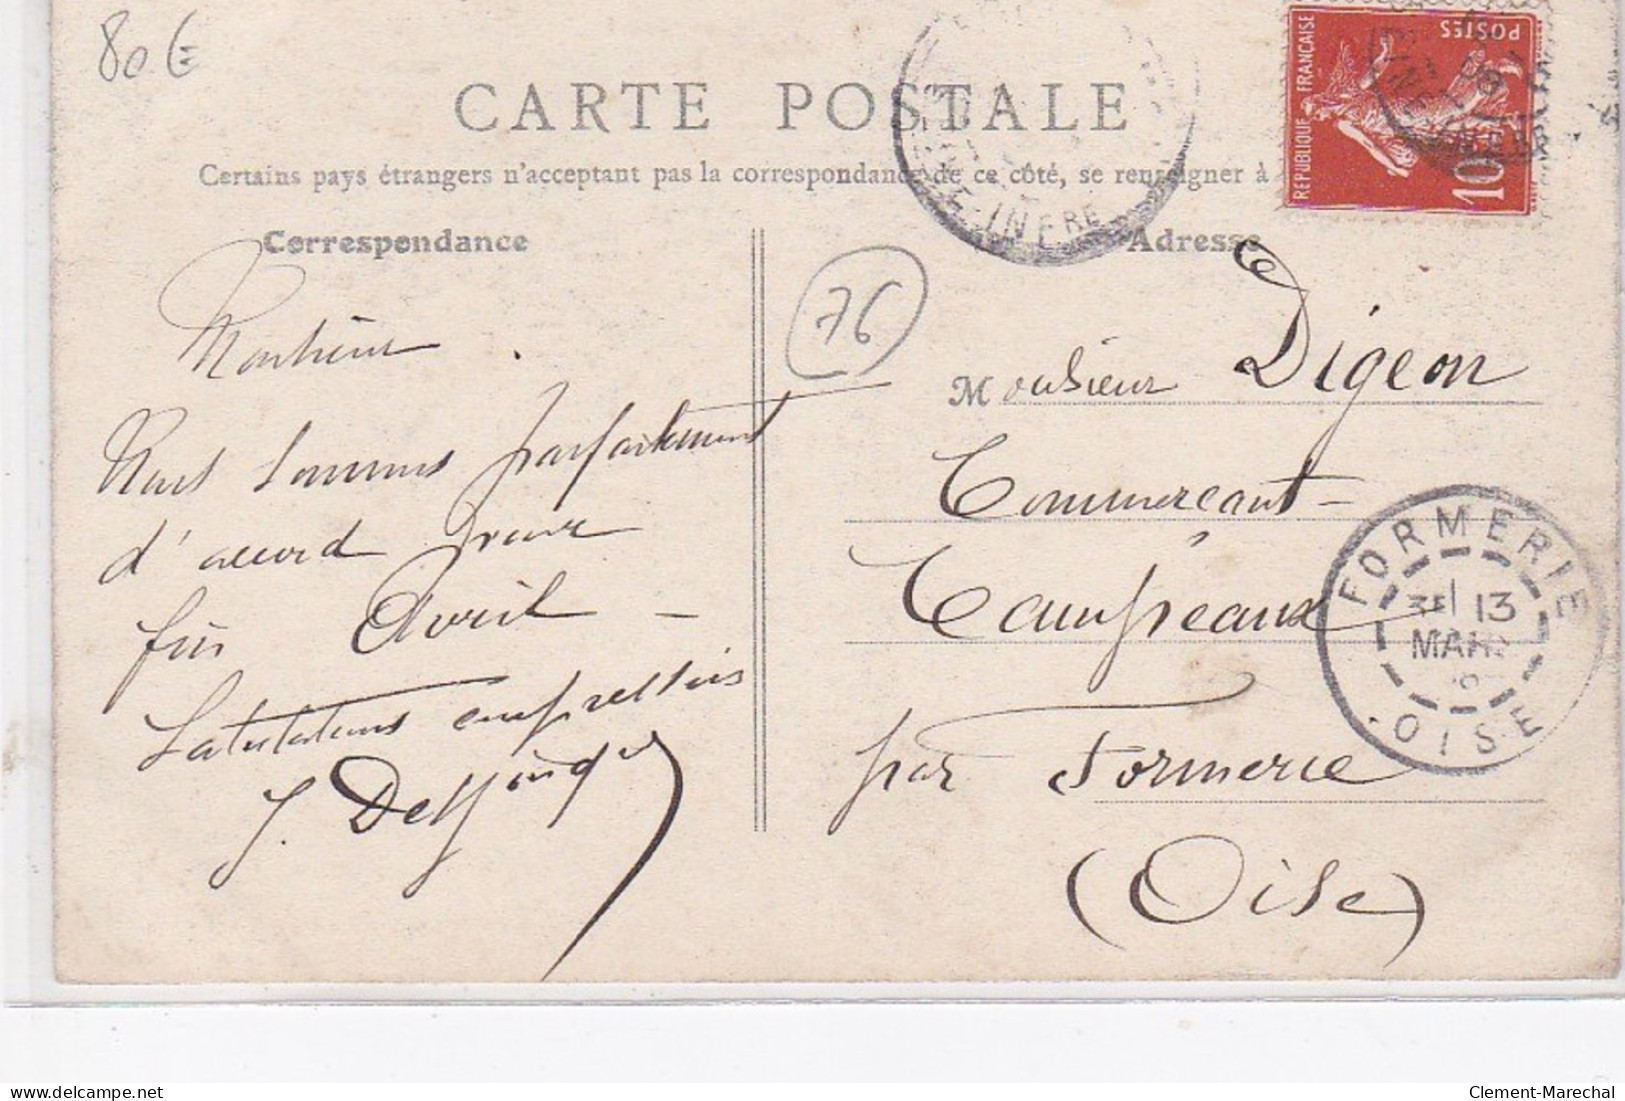 80 €
CARTE POSTALE
Certains pays étrangers n'acceptant pas la correspondance de ce côté, se renseigner à
REPUBLIQUE FRANÇAISE
POSTES
10
INFÉRE
Correspondance
Adresse
76
Monsieur
Nous sommes parfaitement
d'accord pour
fin Avril –
Salutations empressées
J.
Monsieur Digeon
Commerçant –
Campeaux
par Formerie
(Oise)
FORMERIE
13
MARS
OISE
Clement-Marechal